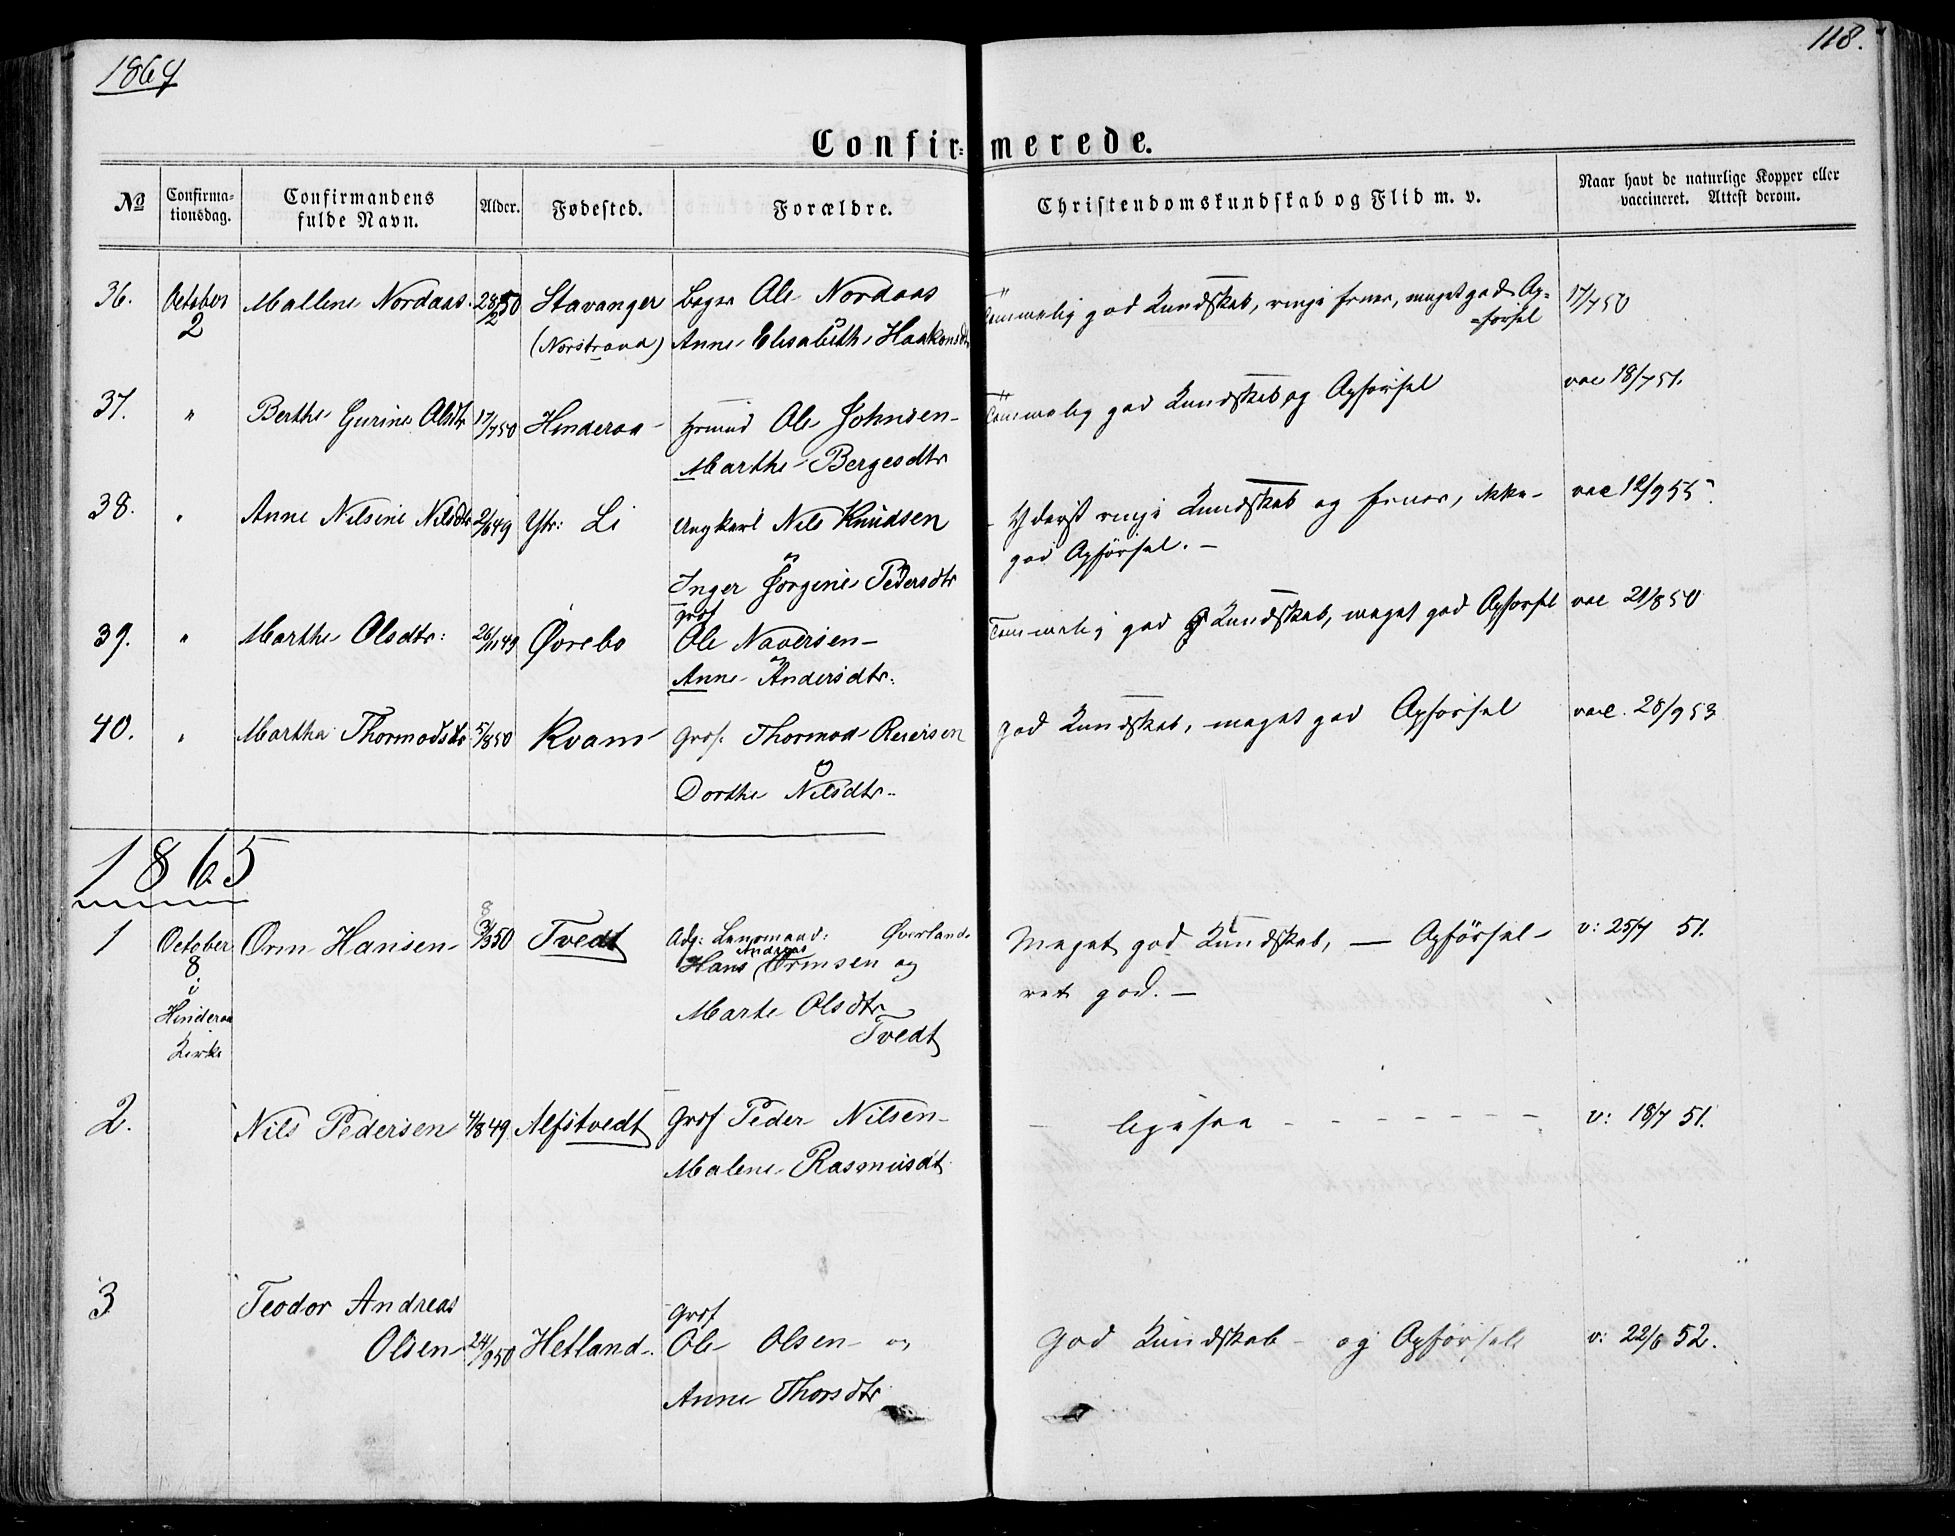 1864
118.
Confir= merede.
No Confirma-tionsdag. Confirmandens fulde Navn. Alder. Fødested. Forældre. Christendomskundskab og Flid m. v. Naar havt de naturlige Kopper eller vaccineret. Attest derom.
36. October 2 Mallene Nordaas. 28/2 50 Stavanger Ole Nordaas Temmelig god Kundskab, ringe Evner, meget god Op= 17/7 50
(Norstraa) Anne Elisabeth Haakonsdtr =førsel
37. " Berthe Gurine Olsdtr 17/7 50 Hinderaa Hrmnd Ole Johnsen Temmelig god Kundskab og Opførsel vac 18/7 51.
Marthe Bergesdtr
38. " Anne Nilsine Nilsdtr 2/6 49 Ytr: Li Ungkarl Nils Knudsen Yderst ringe Kundskab og Evner, ikke vac 12/9 55.
god Opførsel. —
Inger Jørgine Pedersdtr
39. " Marthe Olsdtr: 26/11 49 Øvrebo Grdf Temmelig god Kundskab, meget god Opførsel vac 21/8 50
Ole Naversen
Anne Andersdtr.
40. " Martha Thormodsdtr 5/8 50 Kvam Grdf. Thormod Reiersen god Kundskab, meget god Opførsel vac. 28/9 53
Dorthe Nilsdtr.
1865
1 October Orm Hansen 3/3 50 Tvedt Adj: Lensmand: Øverland Meget god Kundskab, — Opførsel v: 25/7 51.
8 Hans Andreas Ormsen og ret god. —
i Hinderaa Kirke Marte Olsdtr
Tvedt
2. Nils Pedersen 4/8 49. Alfstvedt Grdf Peder Nilsen — ligesaa - - - - - - - v: 18/7 51.
Malene Rasmusdt
3 Teodor Andreas Grdf
Olsen 24/9 50 Hetland. Ole Olsen og God Kundskab og Opførsel v: 22/8 52.
Anne Thorsdtr